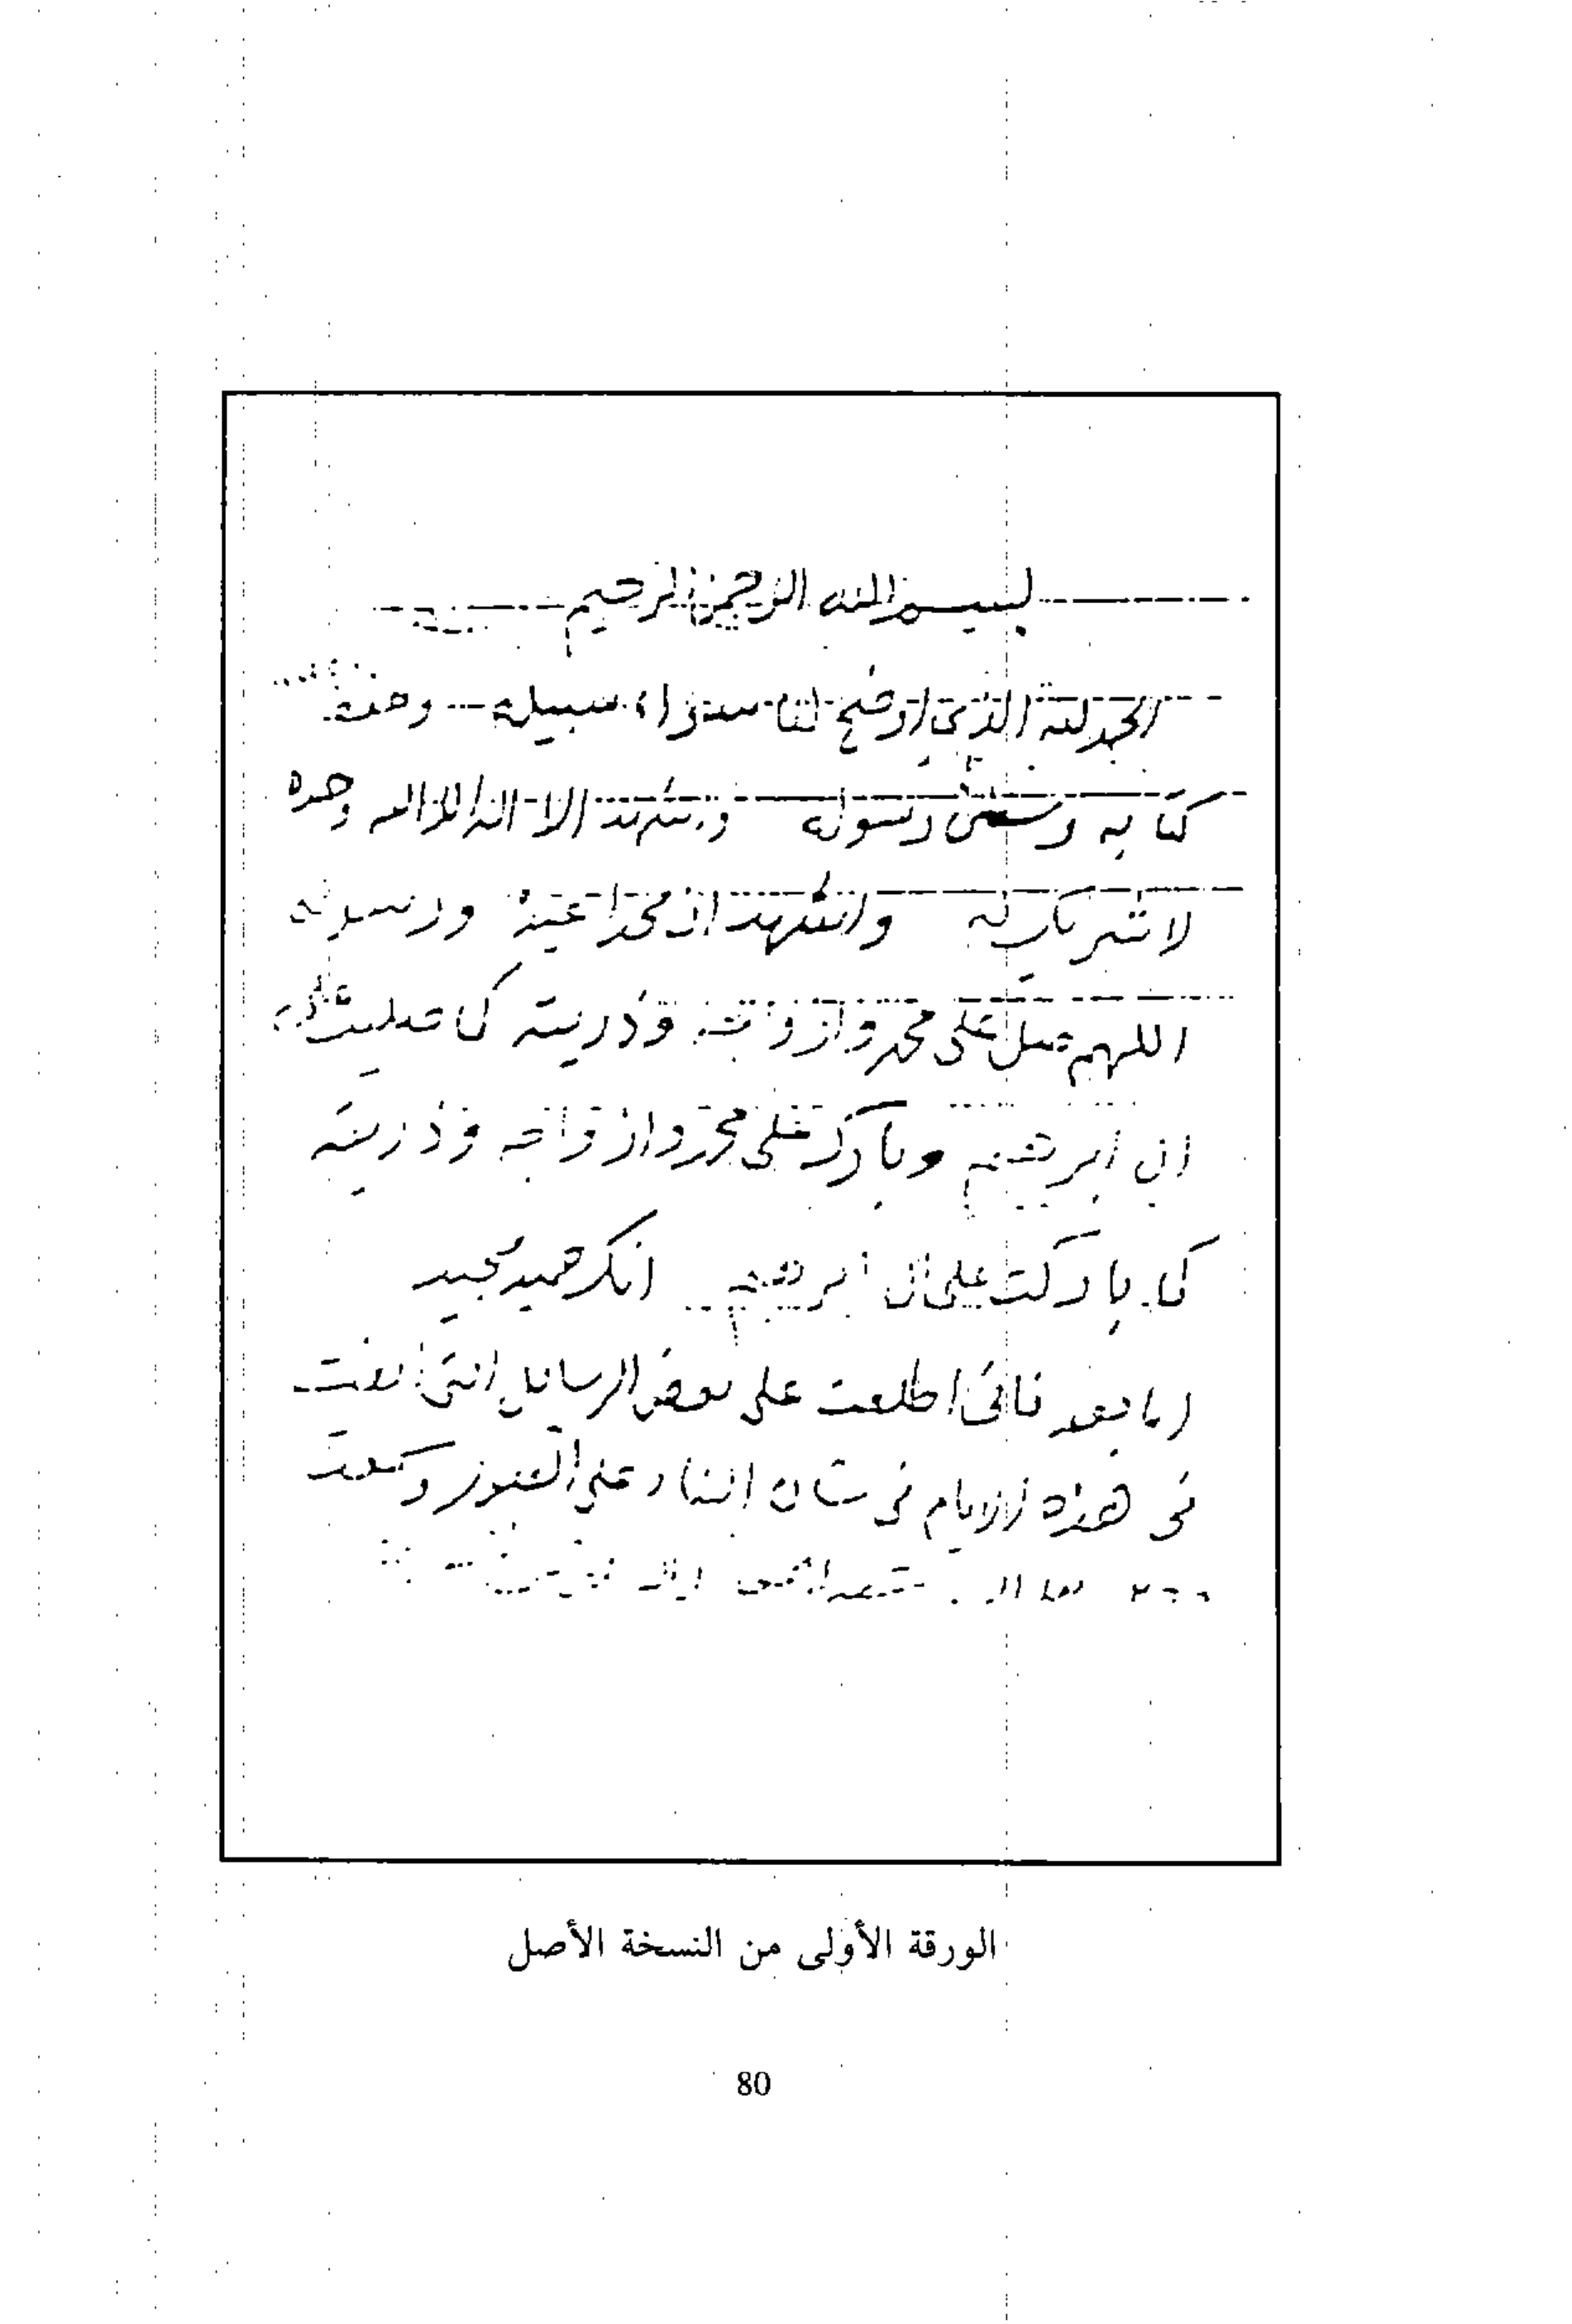 بسم الله الرحمن الرحيم
الحمد لله الذي اوضح لنا سواء سبيله
كتابه وسنن رسوله ونشهد الا اله الا الله وحده
لا شريك له واشهد ان محمدا عبده ورسوله
اللهم صل على محمد وازواجه وذريته كما صليت على
ال ابرهيم وبارك على محمد وازواجه وذريته
كما باركت على ال ابرهيم انك حميد مجيد
اما بعد فانى اطلعت على بعض الرسايل التى الفت
فى هذه الايام فى شان البناء على القبور وسمعت
الورقة الأولى من النسخة الأصل
80